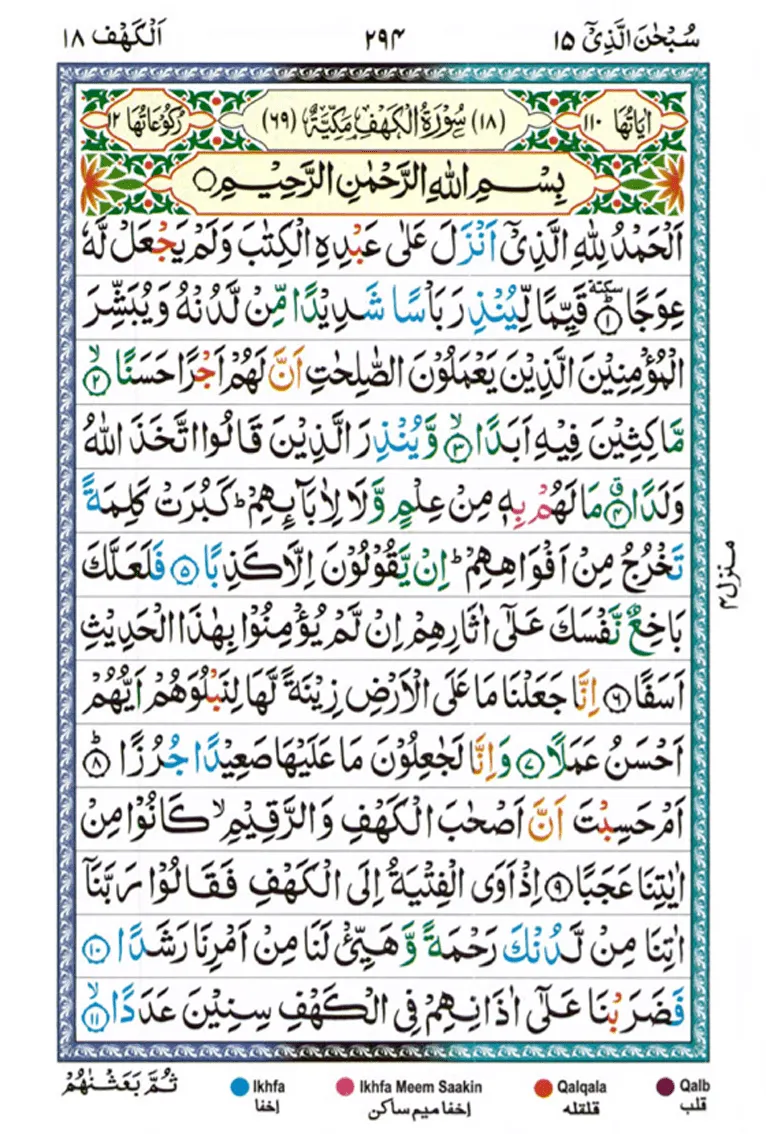 سُبْحٰنَ الَّذِیْۤ ١٥
٢٩۴
اَلْكَهْف ١٨
اٰيَاتُهَا ١١٠
(١٨) سُوْرَةُ الْكَهْفِ مَكِّيَّةٌ (٦٩)
رُكُوْعَاتُهَا ١٢
بِسْمِ اللّٰهِ الرَّحْمٰنِ الرَّحِيْمِ ○
اَلْحَمْدُ لِلّٰهِ الَّذِیْۤ اَنْزَلَ عَلٰى عَبْدِهِ الْكِتٰبَ وَلَمْ يَجْعَلْ لَّهٗ
عِوَجًا ۜ سكتة ١ قَيِّمًا لِّيُنْذِرَ بَاْسًا شَدِيْدًا مِّنْ لَّدُنْهُ وَيُبَشِّرَ
الْمُؤْمِنِيْنَ الَّذِيْنَ يَعْمَلُوْنَ الصّٰلِحٰتِ اَنَّ لَهُمْ اَجْرًا حَسَنًا ۙ ٢
مَّاكِثِيْنَ فِيْهِ اَبَدًا ۙ ٣ وَّيُنْذِرَ الَّذِيْنَ قَالُوا اتَّخَذَ اللّٰهُ
وَلَدًا ۗ ۴ مَا لَهُمْ بِهٖ مِنْ عِلْمٍ وَّلَا لِاٰبَآىِٕهِمْ ؕ كَبُرَتْ كَلِمَةً
تَخْرُجُ مِنْ اَفْوَاهِهِمْ ؕ اِنْ يَّقُوْلُوْنَ اِلَّا كَذِبًا ۵ فَلَعَلَّكَ
بَاخِعٌ نَّفْسَكَ عَلٰۤى اٰثَارِهِمْ اِنْ لَّمْ يُؤْمِنُوْا بِهٰذَا الْحَدِيْثِ
اَسَفًا ٦ اِنَّا جَعَلْنَا مَا عَلَى الْاَرْضِ زِيْنَةً لَّهَا لِنَبْلُوَهُمْ اَيُّهُمْ
اَحْسَنُ عَمَلًا ٧ وَاِنَّا لَجٰعِلُوْنَ مَا عَلَيْهَا صَعِيْدًا جُرُزًا ؕ ٨
اَمْ حَسِبْتَ اَنَّ اَصْحٰبَ الْكَهْفِ وَالرَّقِيْمِ ۙ كَانُوْا مِنْ
اٰيٰتِنَا عَجَبًا ٩ اِذْ اَوَى الْفِتْيَةُ اِلَى الْكَهْفِ فَقَالُوْا رَبَّنَاۤ
اٰتِنَا مِنْ لَّدُنْكَ رَحْمَةً وَّهَيِّئْ لَنَا مِنْ اَمْرِنَا رَشَدًا ١٠
فَضَرَبْنَا عَلٰۤى اٰذَانِهِمْ فِى الْكَهْفِ سِنِيْنَ عَدَدًا ۙ ١١
منزل ۴
ثُمَّ بَعَثْنٰهُمْ
Ikhfa
اخفا
Ikhfa Meem Saakin
اخفا میم ساکن
Qalqala
قلقله
Qalb
قلب